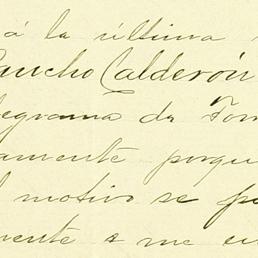 á la última
Pancho Calderón
legrama de Tom
amente porque
l motivo se pu
mente a me en